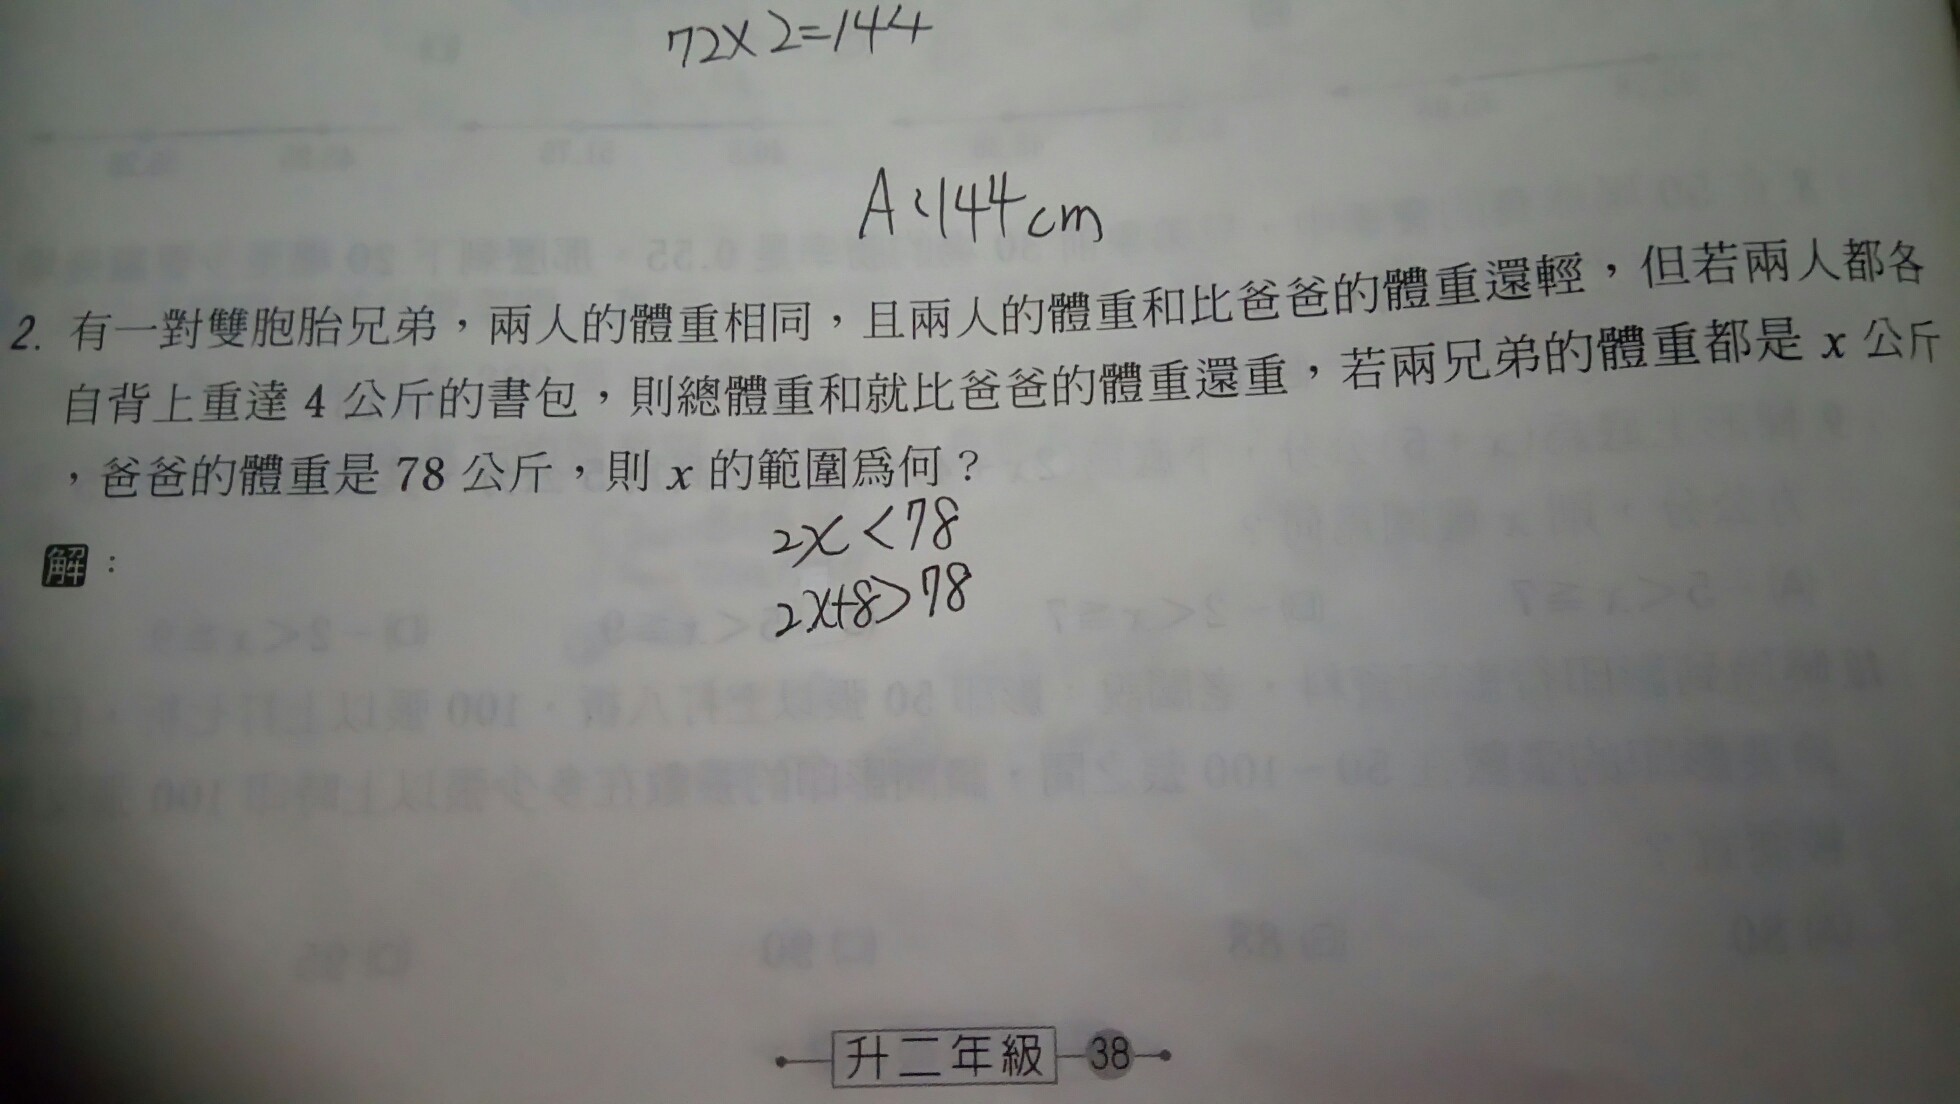 72×2=144
A:144cm
2. 有一對雙胞胎兄弟，兩人的體重相同，且兩人的體重和比爸爸的體重還輕，但若兩人都各
自背上重達 4 公斤的書包，則總體重和就比爸爸的體重還重，若兩兄弟的體重都是 x 公斤
，爸爸的體重是 78 公斤，則 x 的範圍為何？
2x<78
解：
2x+8>78
升二年級 38